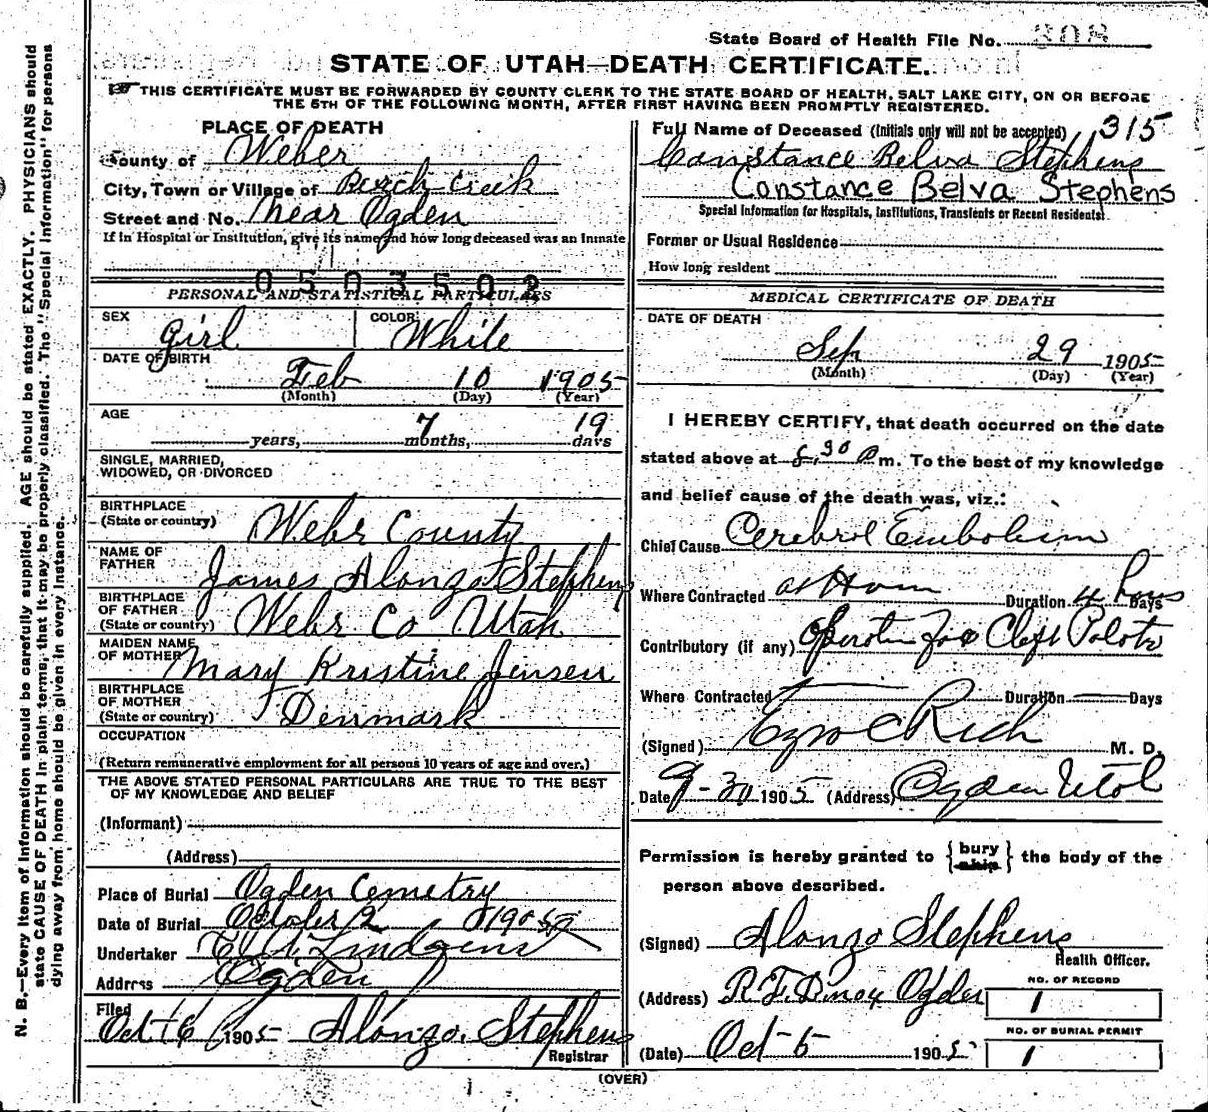 State Board of Health File No. 308
STATE OF UTAH—DEATH CERTIFICATE.
THIS CERTIFICATE MUST BE FORWARDED BY COUNTY CLERK TO THE STATE BOARD OF HEALTH, SALT LAKE CITY, ON OR BEFORE
THE 5TH OF THE FOLLOWING MONTH, AFTER FIRST HAVING BEEN PROMPTLY REGISTERED.
N. B.—Every item of information should be carefully supplied. AGE should be stated EXACTLY. PHYSICIANS should
state CAUSE OF DEATH in plain terms, that it may be properly classified. The "Special Information" for persons
dying away from home should be given in every instance.
PLACE OF DEATH
County of Weber
City, Town or Village of Burch Creek
Street and No. Near Ogden
If in Hospital or Institution, give its name and how long deceased was an Inmate
0503502
PERSONAL AND STATISTICAL PARTICULARS
SEX Girl COLOR White
DATE OF BIRTH
Feb 10 1905
(Month) (Day) (Year)
AGE
years, 7 months, 19 days
SINGLE, MARRIED,
WIDOWED, OR DIVORCED
BIRTHPLACE
(State or country) Webr County
NAME OF
FATHER James Alonzo Stephens
BIRTHPLACE
OF FATHER
(State or country) Webr Co Utah
MAIDEN NAME
OF MOTHER Mary Kristine Jensen
BIRTHPLACE
OF MOTHER
(State or country) Denmark
OCCUPATION
(Return remunerative employment for all persons 10 years of age and over.)
THE ABOVE STATED PERSONAL PARTICULARS ARE TRUE TO THE BEST
OF MY KNOWLEDGE AND BELIEF
(Informant)
(Address)
Place of Burial Ogden Cemetry
Date of Burial October 2 1905
Undertaker Lindquist
Address Ogden
Filed
Oct 6 1905 Alonzo Stephens
Registrar
Full Name of Deceased (Initials only will not be accepted) 315
Constance Belva Stephens
Constance Belva Stephens
Special Information for Hospitals, Institutions, Transients or Recent Residents.
Former or Usual Residence
How long resident
MEDICAL CERTIFICATE OF DEATH
DATE OF DEATH
Sep 29 1905
(Month) (Day) (Year)
I HEREBY CERTIFY, that death occurred on the date
stated above at 8,30 P m. To the best of my knowledge
and belief cause of the death was, viz.:
Chief Cause Cerebral Embolism
Where Contracted at Hom Duration 4 hours Days
Contributory (if any) Operation for Cleft Palate
Where Contracted Duration Days
(Signed) Ezra C Rich M. D.
Date 9-30 1905 (Address) Ogden Utah
Permission is hereby granted to {bury ship} the body of the
person above described.
(Signed) Alonzo Stephens
Health Officer.
(Address) R.F.D. Ogden
NO. OF RECORD
1
NO. OF BURIAL PERMIT
(Date) Oct 5 1905 1
(OVER)